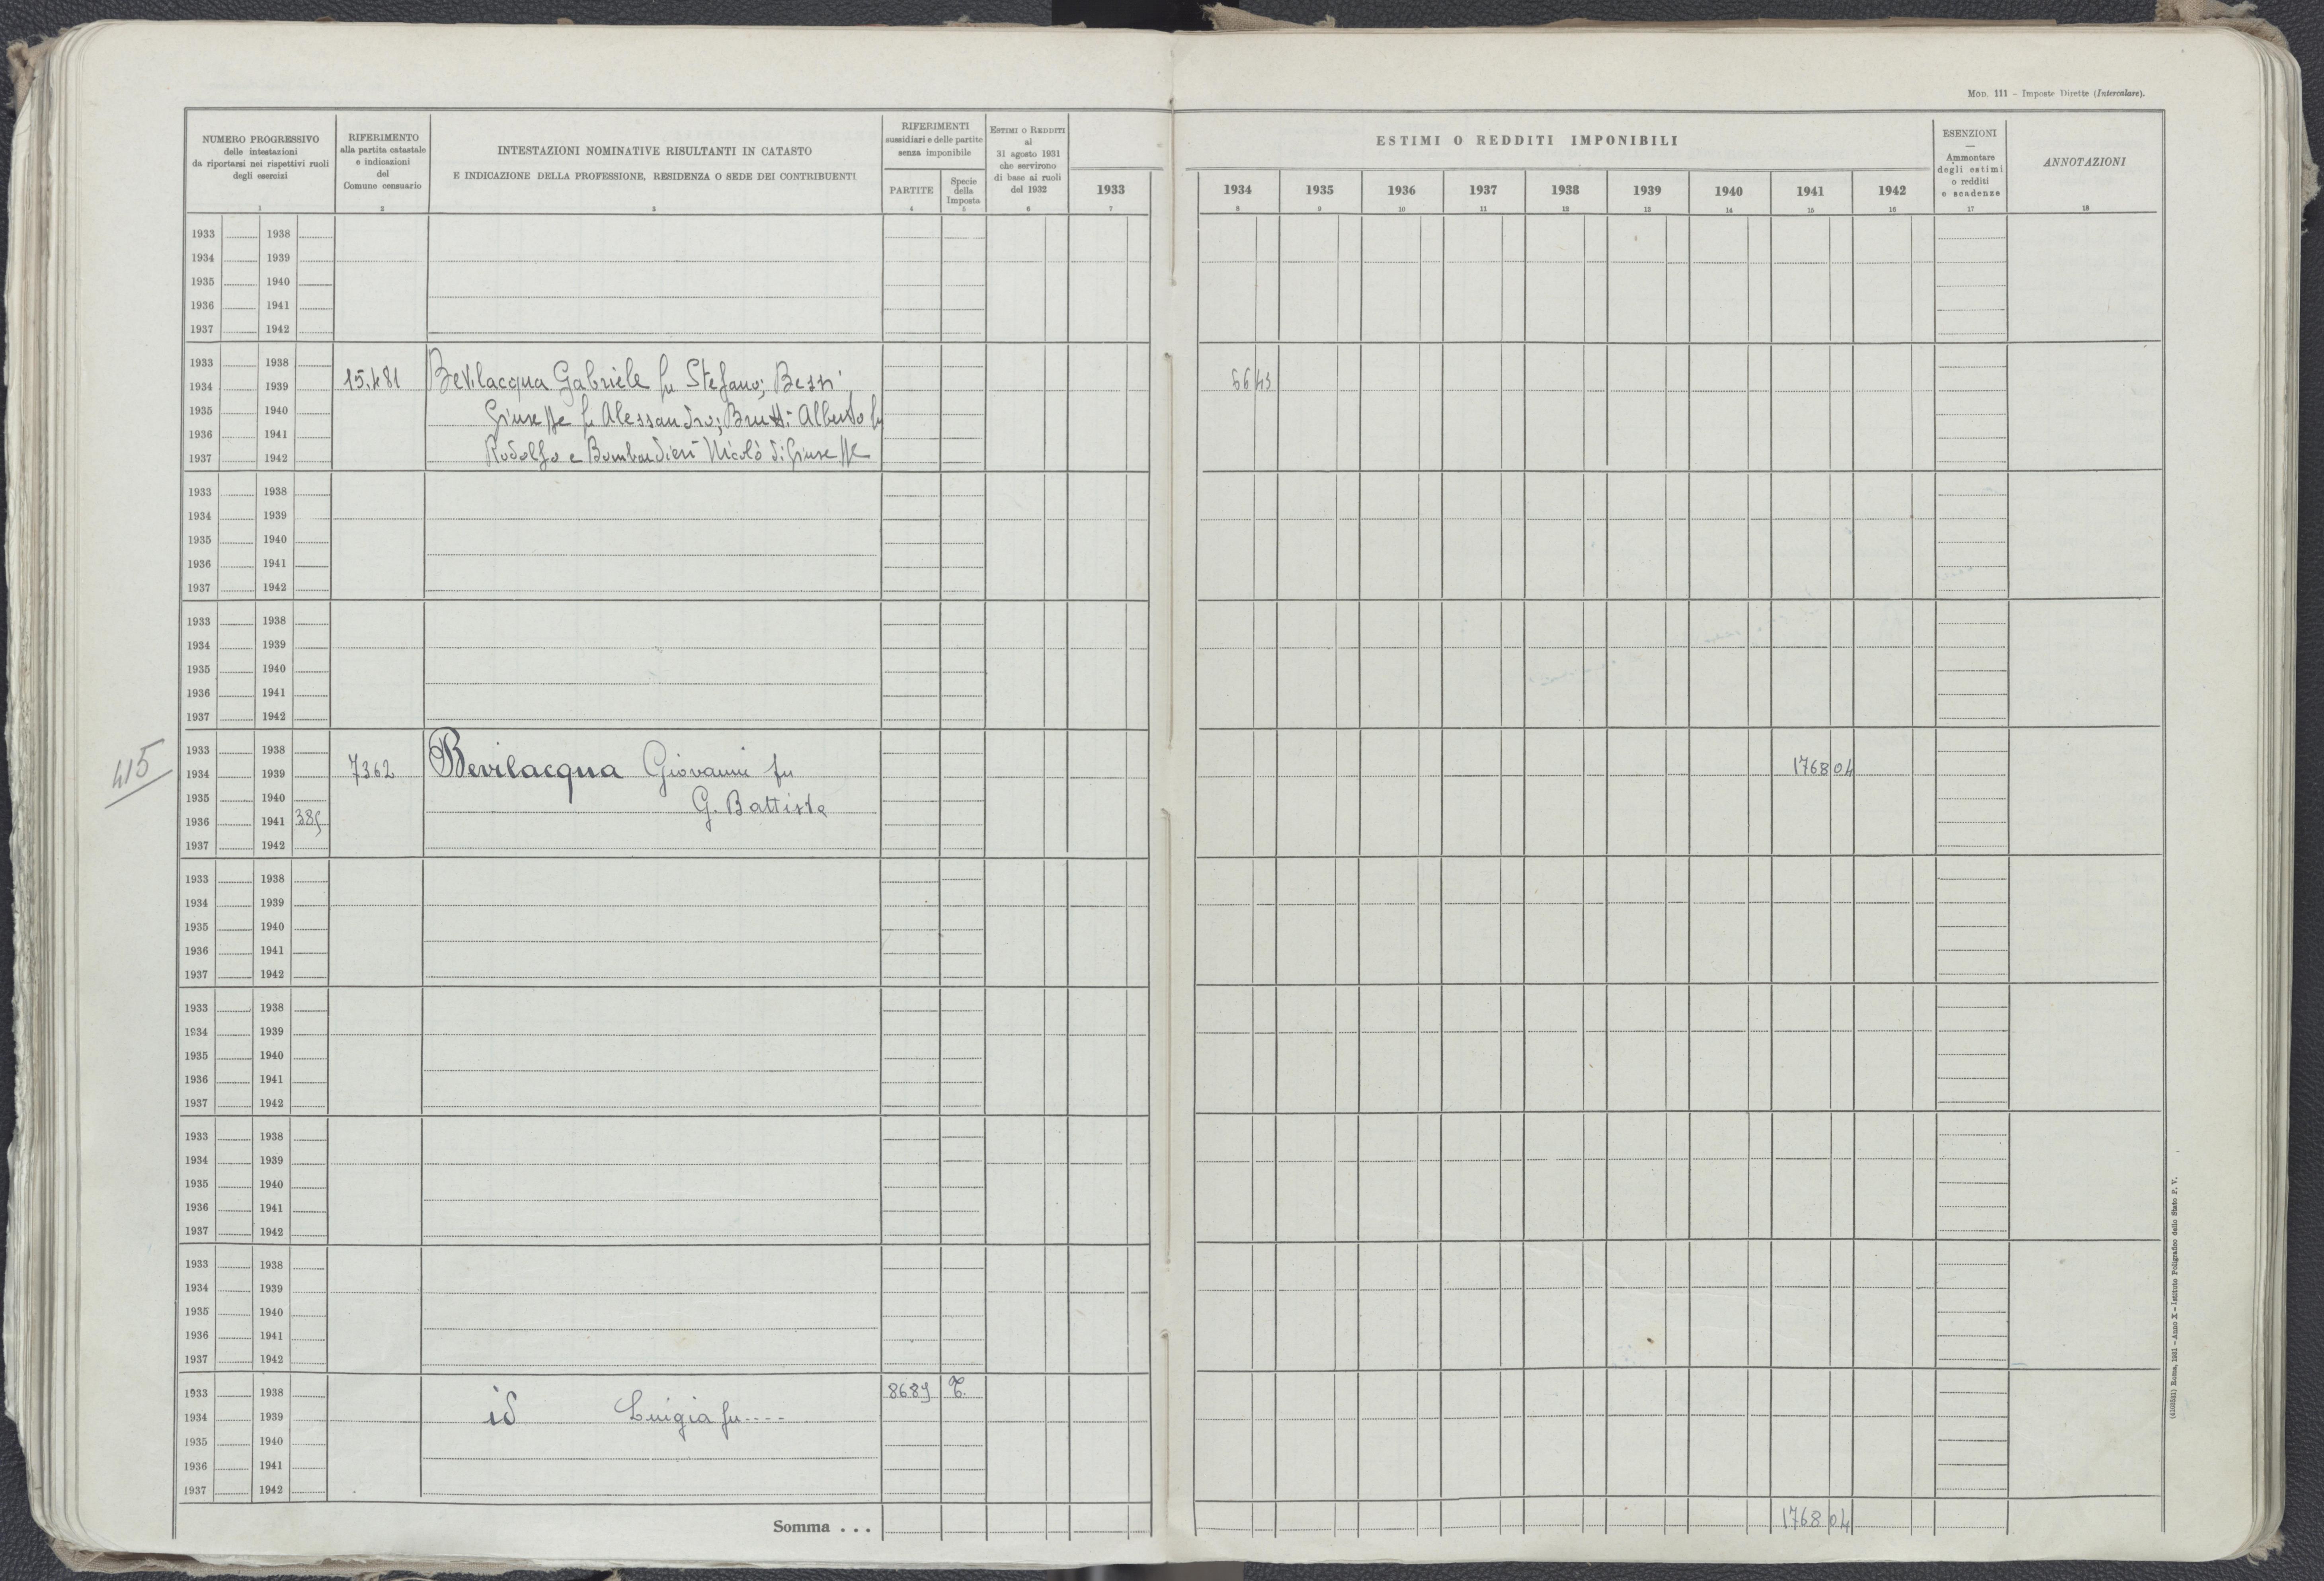 Mod. 111 - Imposte Dirette (Intercalare).
NUMERO PROGRESSIVO
delle intestazioni
da riportarsi nei rispettivi ruoli
degli esercizi
1
RIFERIMENTO
alla partita catastale
e indicazioni
del
Comune censuario
2
INTESTAZIONI NOMINATIVE RISULTANTI IN CATASTO
E INDICAZIONE DELLA PROFESSIONE, RESIDENZA O SEDE DEI CONTRIBUENTI
3
RIFERIMENTI
sussidiari e delle partite
senza imponibile
PARTITE
4
Specie
della
Imposta
5
Estimi o Redditi
al
31 agosto 1931
che servirono
di base ai ruoli
del 1932
6
1933
7
ESTIMI O REDDITI IMPONIBILI
1934 1935 1936 1937 1938 1939 1940 1941 1942
8 9 10 11 12 13 14 15 16
ESENZIONI
—
Ammontare
degli estimi
o redditi
e scadenze
17
ANNOTAZIONI
18
1933 1938
1934 1939
1935 1940
1936 1941
1937 1942
1933 1938
1934 1939 15.481 Bevilacqua Gabriele fu Stefano; Bezzi 66 43
1935 1940 Giuseppe fu Alessandro; Brutti Alberto fu
1936 1941
1937 1942 Rodolfo e Bombardieri Nicolò di Giuseppe
1933 1938
1934 1939
1935 1940
1936 1941
1937 1942
1933 1938
1934 1939
1935 1940
1936 1941
1937 1942
415
1933 1938
1934 1939 7362 Bevilacqua Giovanni fu 1768 04
1935 1940 G. Battista
1936 1941 385
1937 1942
1933 1938
1934 1939
1935 1940
1936 1941
1937 1942
1933 1938
1934 1939
1935 1940
1936 1941
1937 1942
1933 1938
1934 1939
1935 1940
1936 1941
1937 1942
1933 1938
1934 1939
1935 1940
1936 1941
1937 1942
1933 1938 8689 T.
1934 1939 id Luigia fu ----
1935 1940
1936 1941
1937 1942
Somma . . . 1768 04
Roma, 1931 - Anno X - Istituto Poligrafico dello Stato P. V.